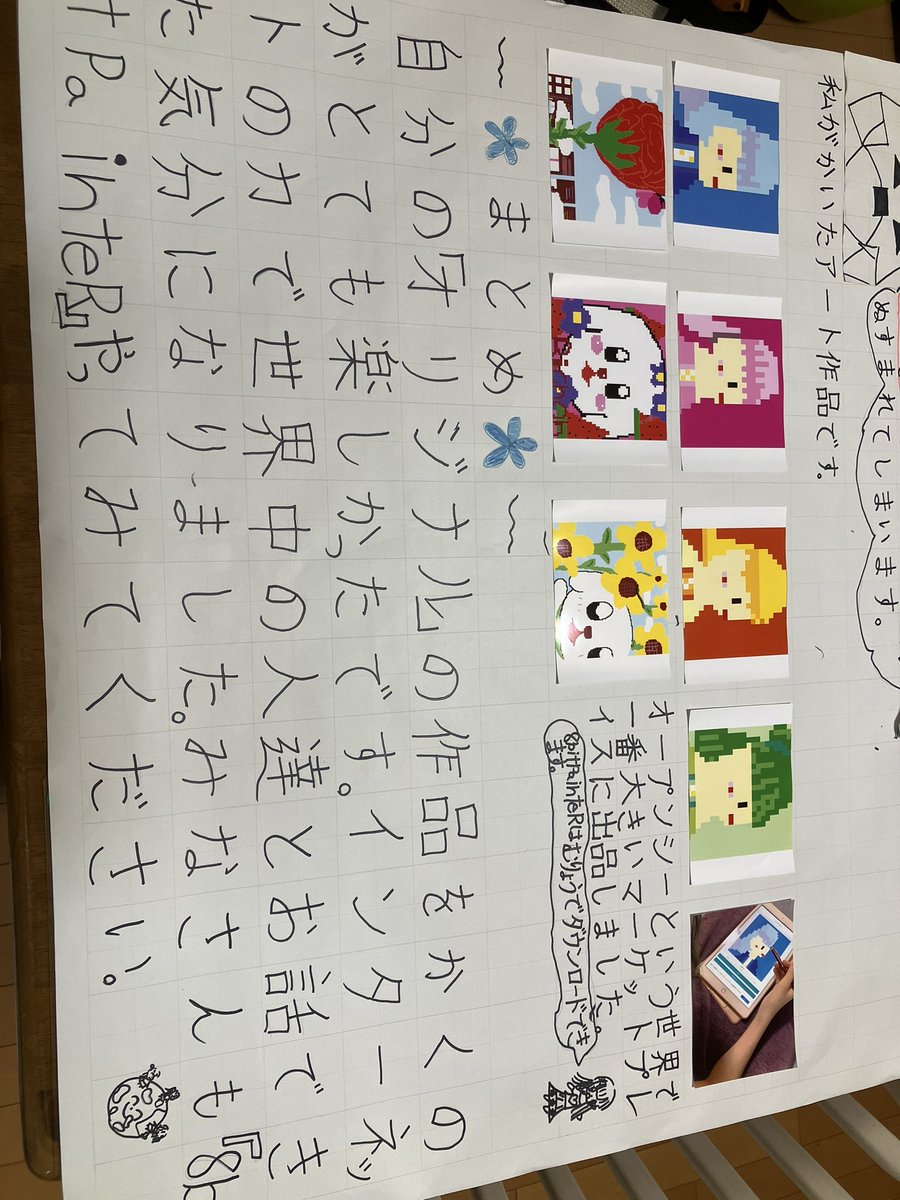 ぬすまれてしまいます。
私がかいたアート作品です。
オープンシーという世界で
一番大きいマーケットプレ
イスに出品しました。
8bitPainteRはむりょうでダウンロードでき
ます。
〜まとめ〜
自分のオリジナルの作品をかくの
がとても楽しかったです。インターネッ
トの力で世界中の人達とお話でき
た気分になりました。みなさんも『8b
tPainteR』やってみてください。